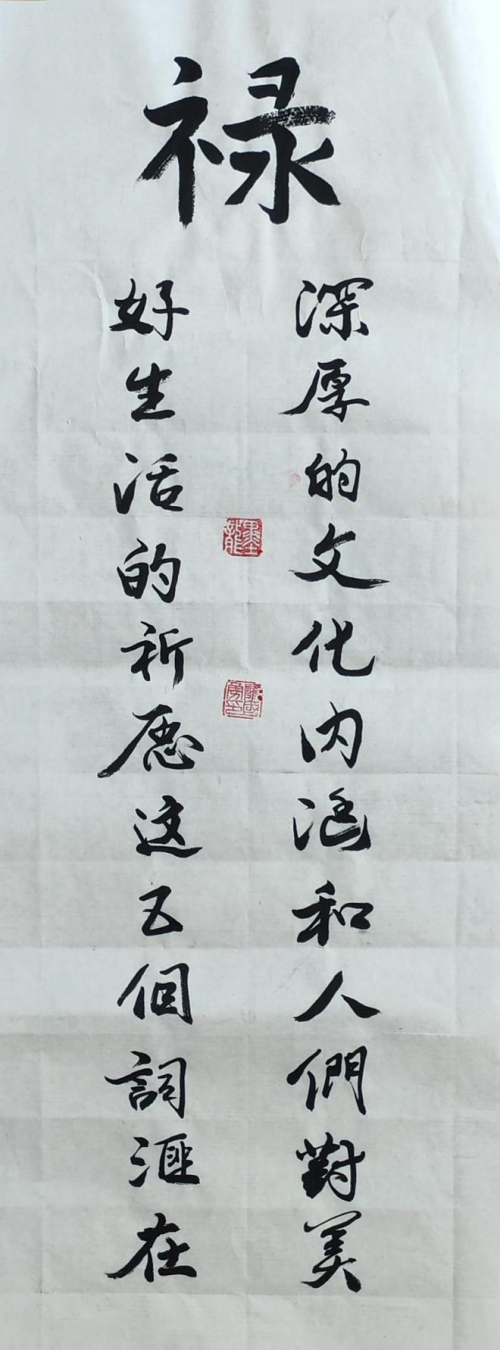 禄
深厚的文化内涵和人們對美
好生活的祈愿这五個詞汇在